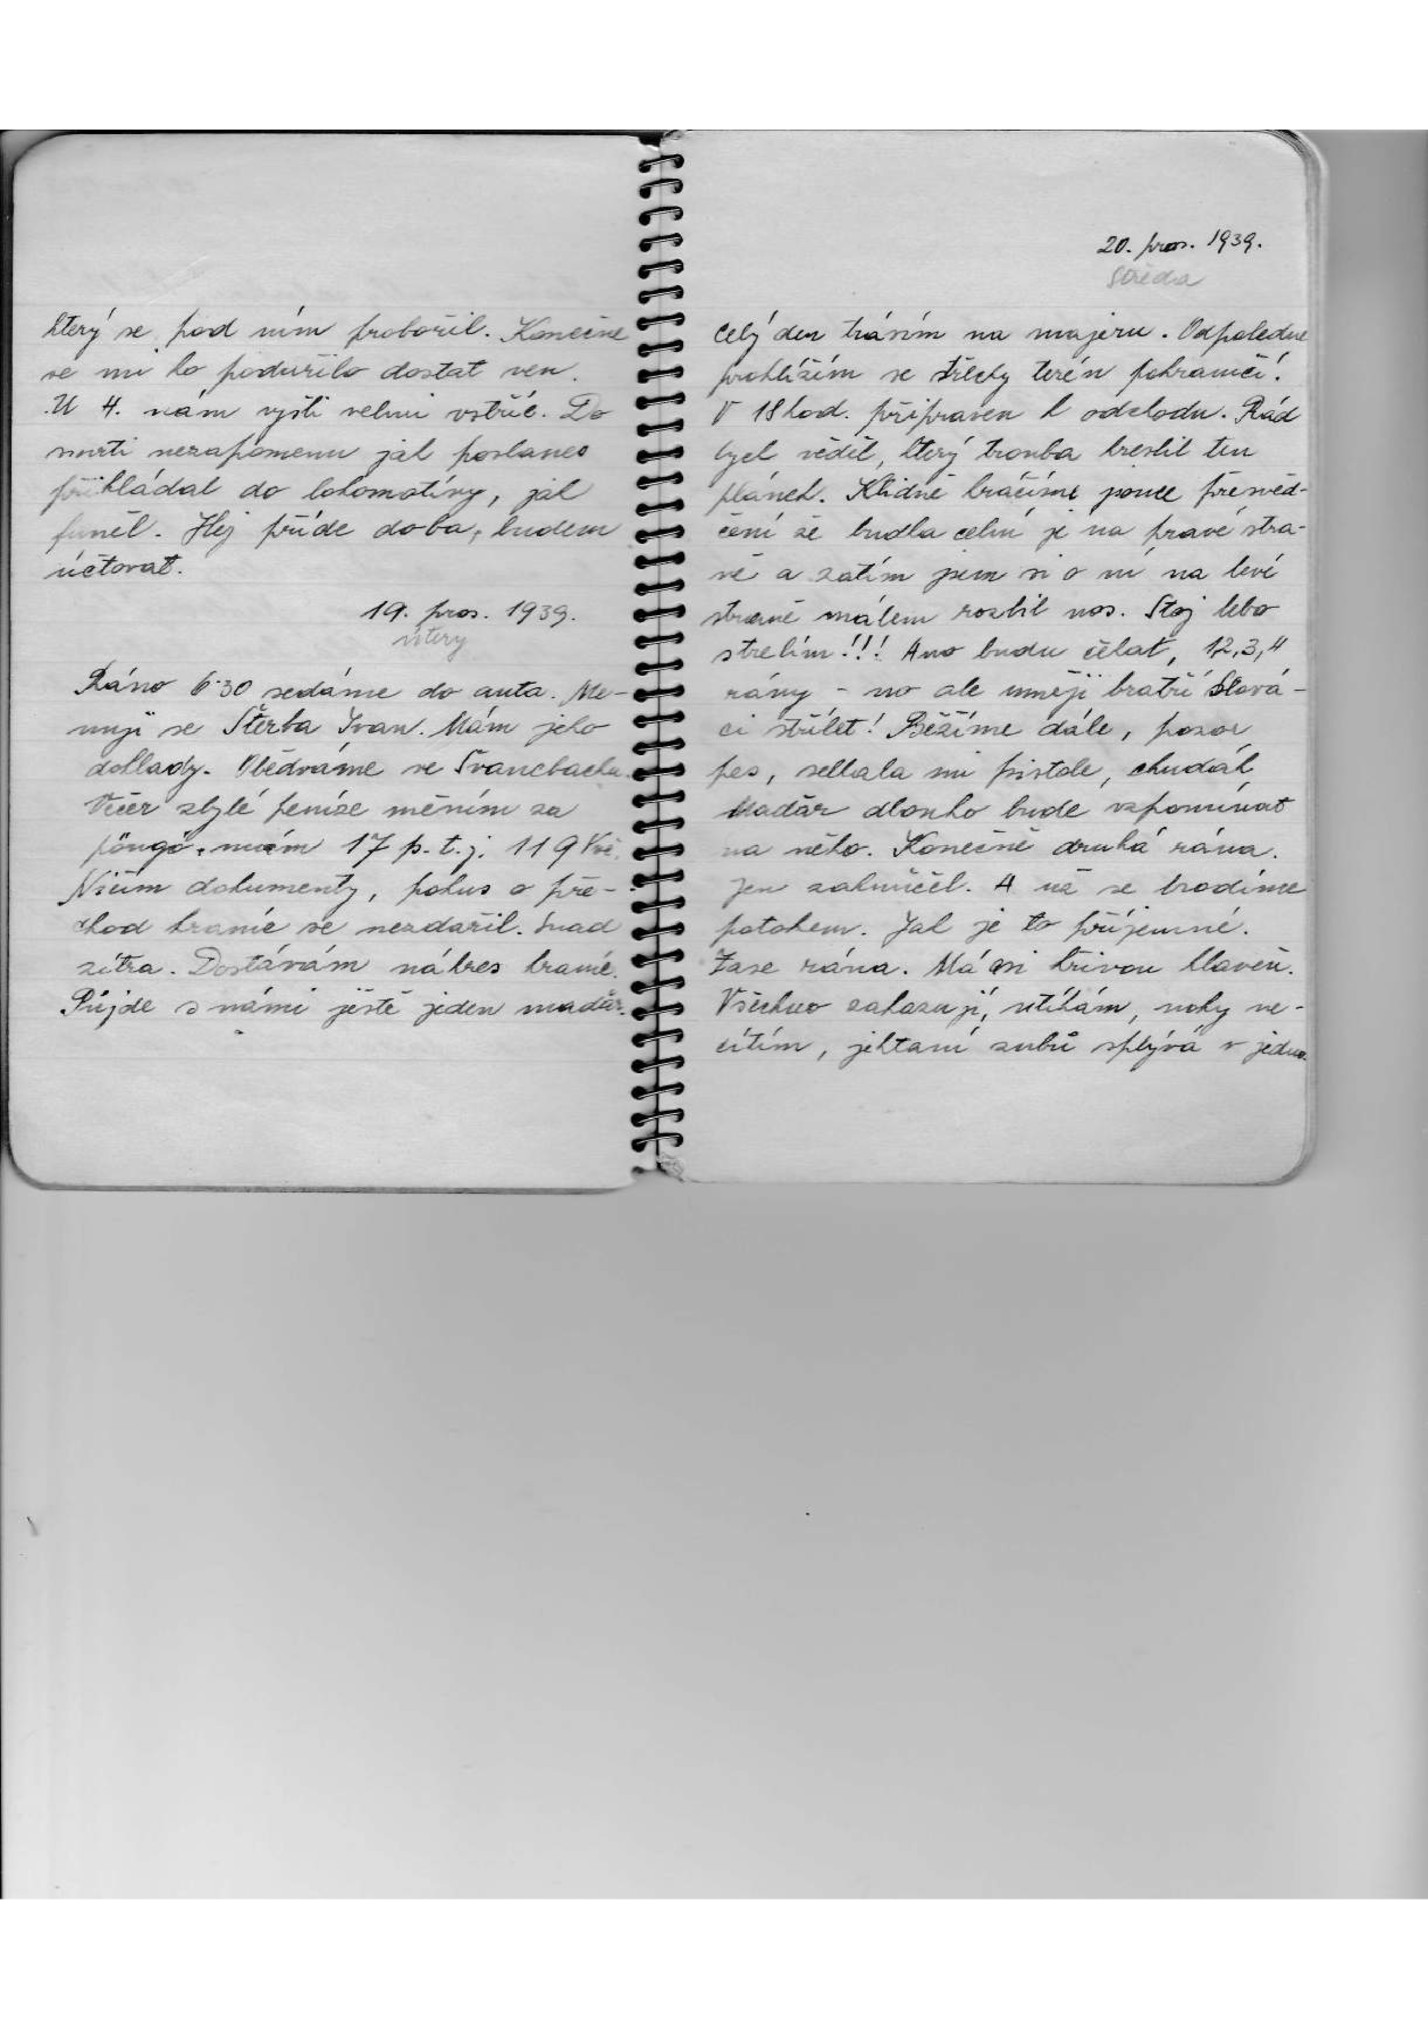 který se pod ním probořil. Konečne
se mi ho podařilo dostat ven.
U H. nám vyšli velmi vstříc. Do
smrti nezapomenu jak poslanec
přikládal do lokomotívy, jak
funěl. Hej příde doba, budem
účtovat.
19. pros. 1939.
útery
Ráno 6·30 sedáme do auta. Me-
nuji se Štěrba Ivan. Mám jeho
doklady. Obědváme ve Švancbachu.
Večer zbylé peníze měním za
pöngö, mám 17 p. t. j. 119 Kč.
Ničím dokumenty, pokus o pře-
chod hranic se nezdařil. Snad
zítra. Dostávám nákres hranic.
Půjde s námi ještě jeden maďar.
20. pros. 1939.
Středa
Celý den trávím na majeru. Odpoledne
prohlížím se střechy terén pohraničí.
V 18 hod. připraven k odchodu. Rád
bych věděl, který trouba kreslil ten
plánek. Klidně kráčíme jsouce přesvěd-
čeni že budka celní je na pravé stra-
ně a zatím jsem si o ni na levé
straně málem rozbil nos. Stoj lebo
strelím!!! Ano budu čekat, 1,2,3,4
rány - no ale umějí bratři Slová-
ci střílet! Běžíme dále, pozor
pes, selhala mi pistole, chudák
Maďar dlouho bude vzpomínat
na něho. Konečně druhá rána.
Jen zakňučel. A už se brodíme
potokem. Jak je to příjemné.
Zase rána. Má asi křivou hlaveň.
Všechno zahazuji, utíkám, nohy ne-
cítím, jektaní zubů splývá v jedno.